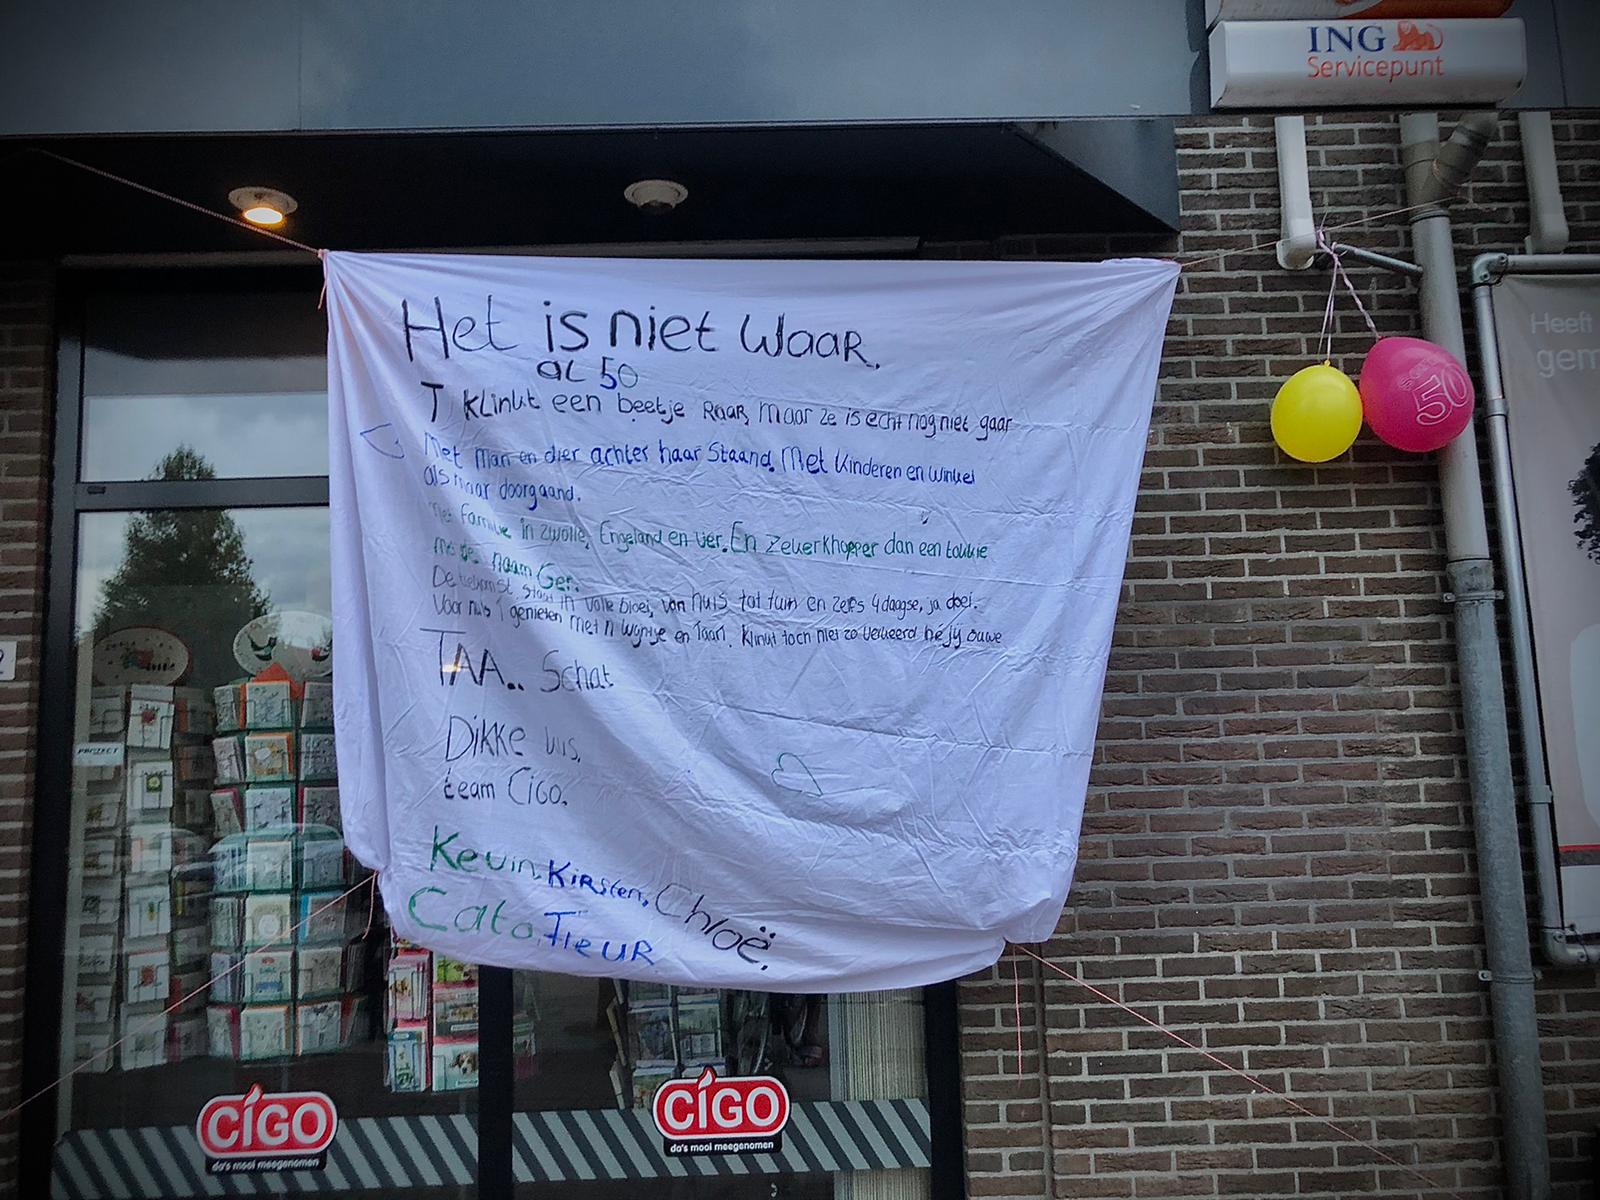 ING
Servicepunt
Het is niet waar.
al 50
T klinkt een beetje raar, maar ze is echt nog niet gaar
Met man en dier achter haar Staand. Met kinderen en winkel
als maar doorgaand.
Met familie in Zwolle, Engeland en ver. En Zeverkhopper dan een
de naam Ger.
De toekomst staat in volle bloei, van huis tot tuin en zelfs 4daagse, ja doei.
Voor nu genieten met 'n wijntje en taart. Klinkt toch niet zo verkeerd hé jij ouwe
TAA.. Schat
Dikke
team Cigo.
Kevin, Kirsten, Chloë,
Cato, Fleur
50
Heeft
gem
CIGO
da's mooi meegenomen
CIGO
da's mooi meegenomen